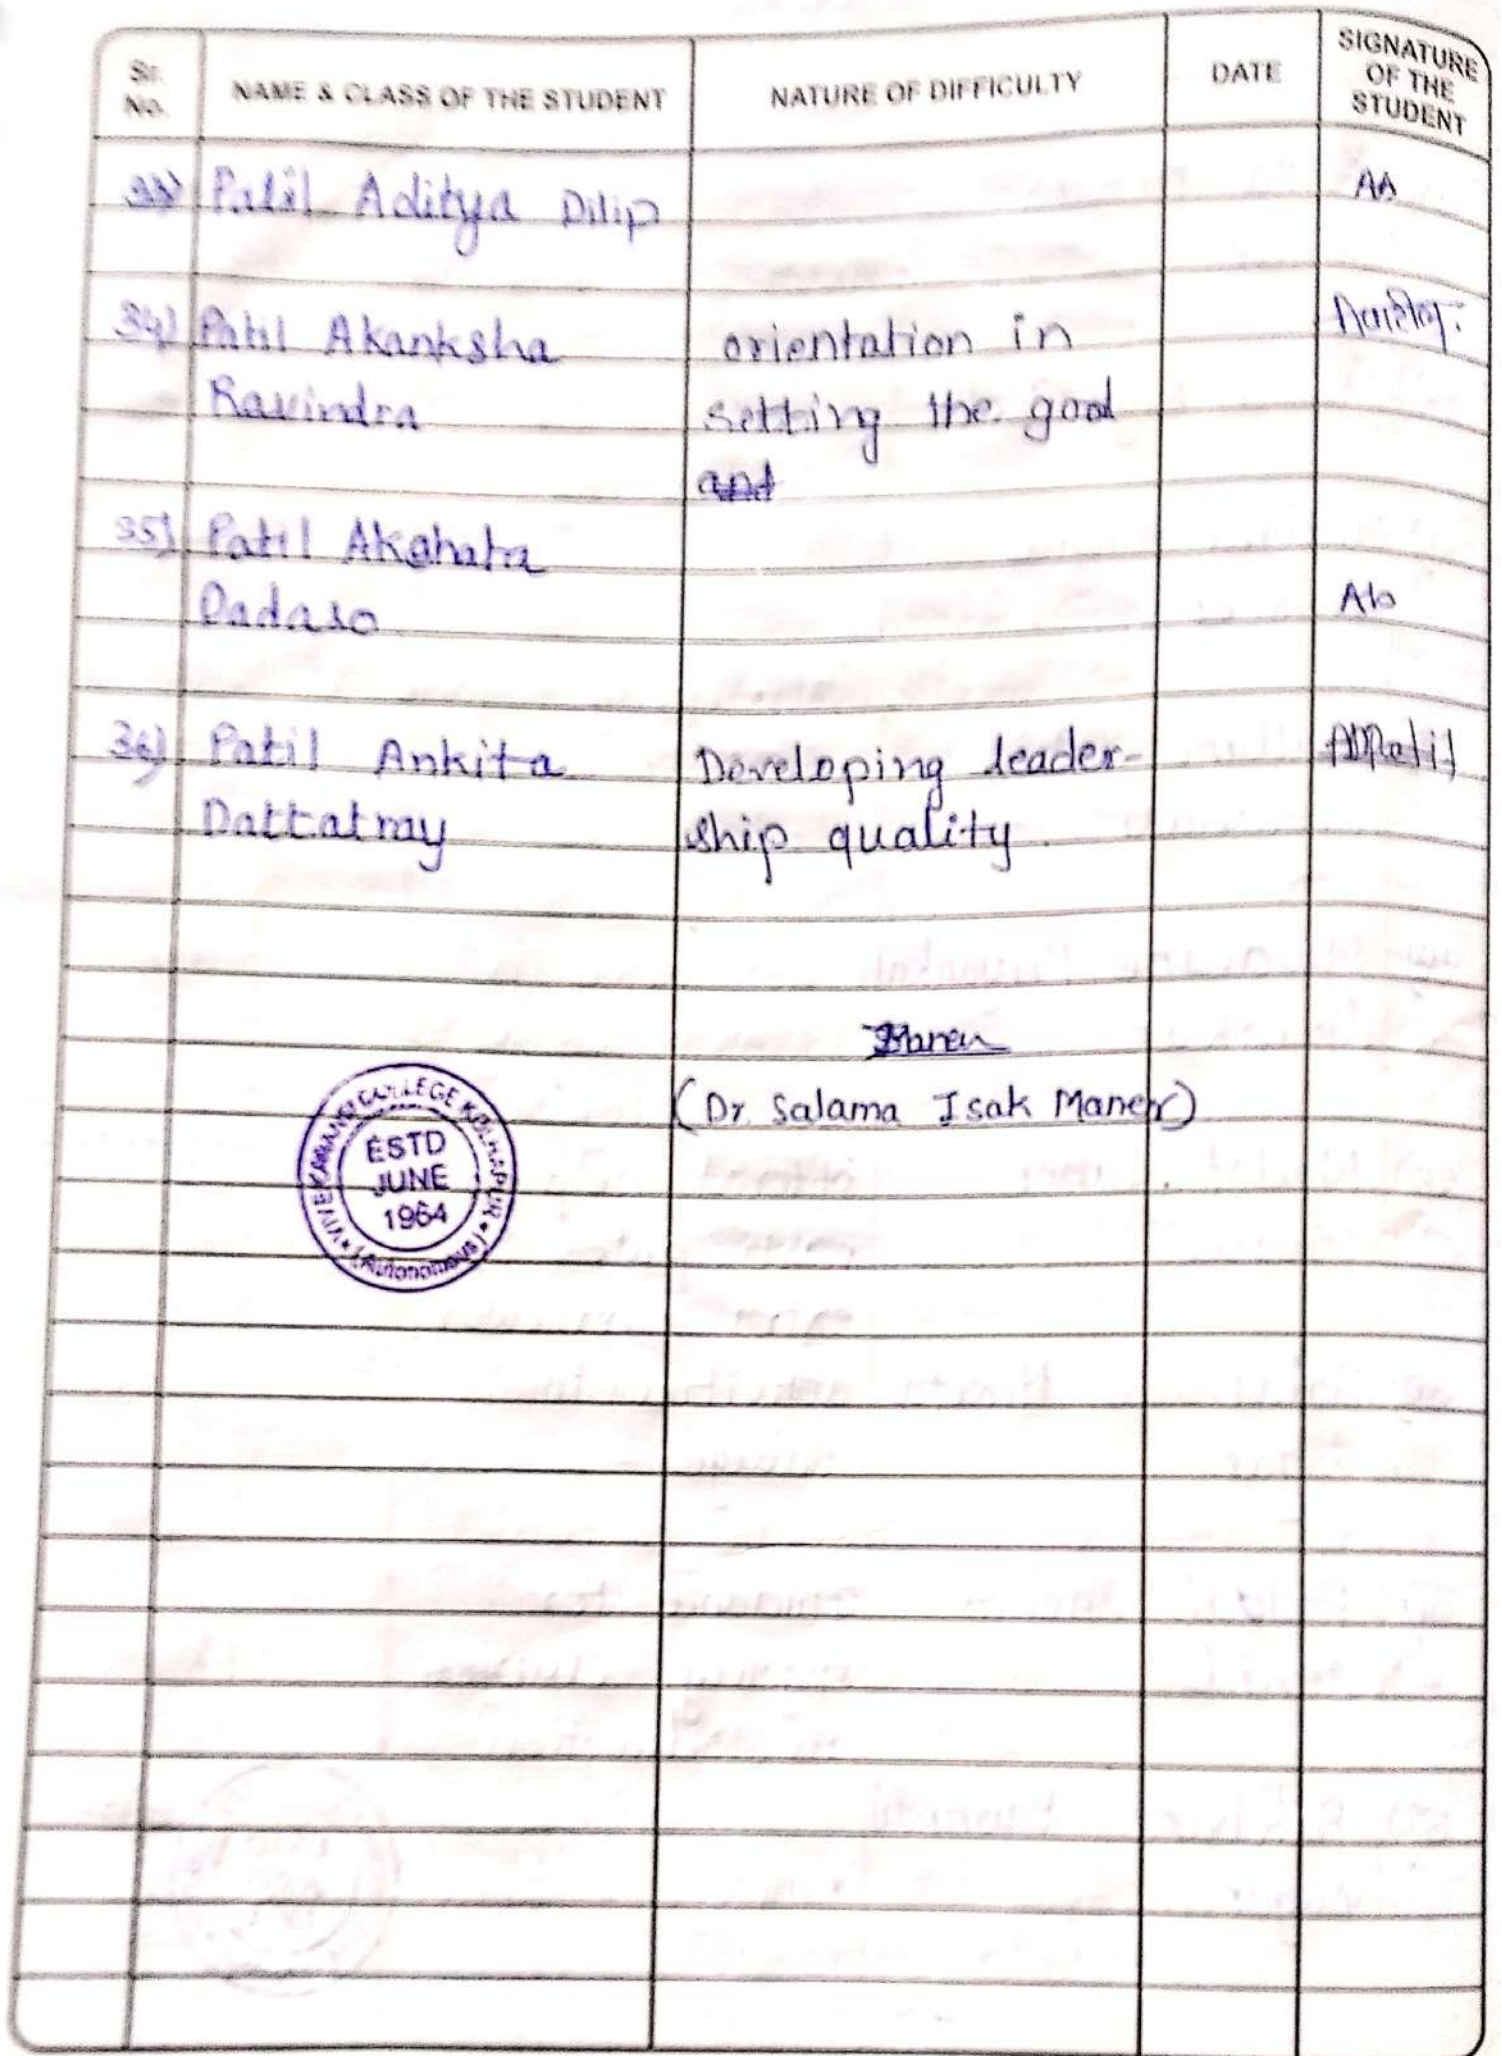 Sr. No.
NAME & CLASS OF THE STUDENT
NATURE OF DIFFICULTY
DATE
SIGNATURE OF THE STUDENT
33) Patil Aditya Dilip AA
34) Patil Akanksha orientation in
Ravindra setting the goal
and
35) Patil Akshata
Dadaso Ab
36) Patil Ankita Developing leader- ADPatil
Dattatray ship quality.
(Dr. Salama Isak Maner)
VIVEKANAND COLLEGE KOLHAPUR (Autonomous)
ESTD
JUNE
1964